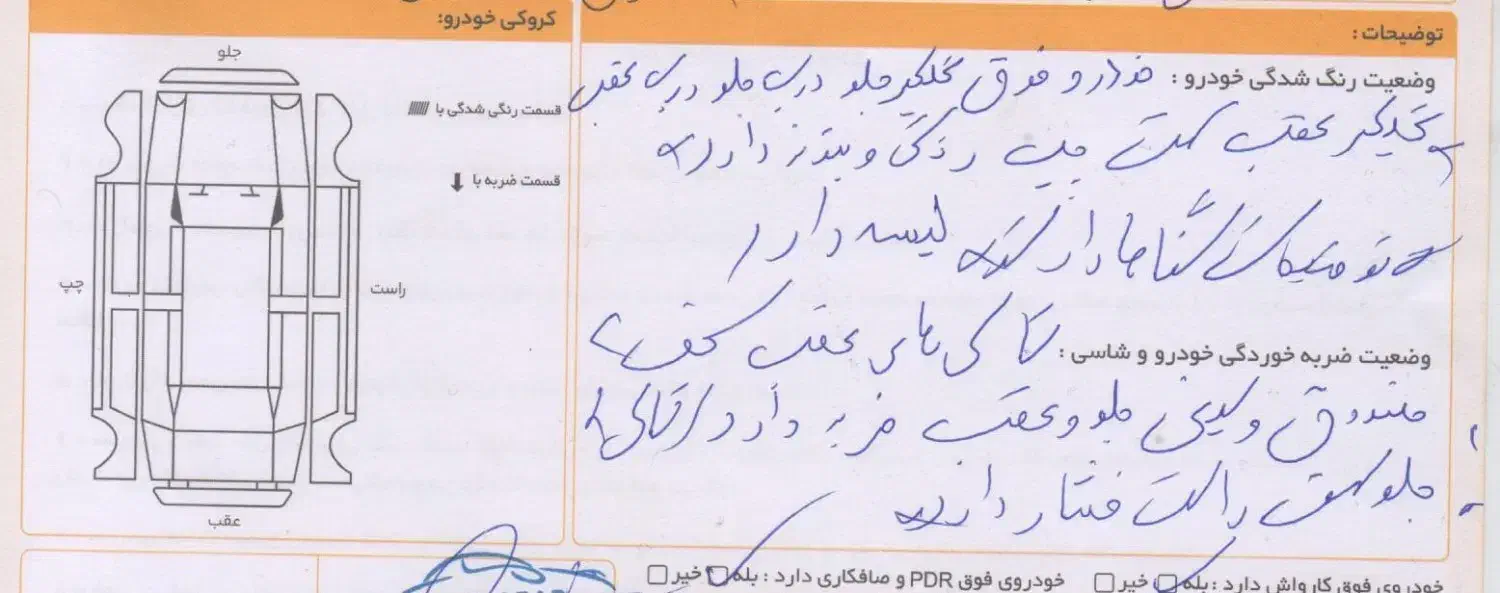 کروکی خودرو:
جلو
قسمت رنگی شدگی با
قسمت ضربه با
چپ
راست
عقب
توضیحات:
وضعیت رنگ شدگی خودرو : خودرو فوق گلگیر جلو درب جلو درب عقب
گلگیر عقب سمت چپ رنگ و بتونه دارد
لیسه دارد
وضعیت ضربه خوردگی خودرو و شاسی : عقب کف
صندوق و سینی جلو و عقب ضربه دارد
جلو سمت راست دارد
خودروی فوق PDR و صافکاری دارد : بله خیر
خودروی فوق کارواش دارد : بله خیر